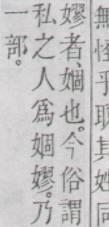 無怪乎取其姓同
嫪者、婟也。今俗謂
私之人爲婟嫪。乃
一部。